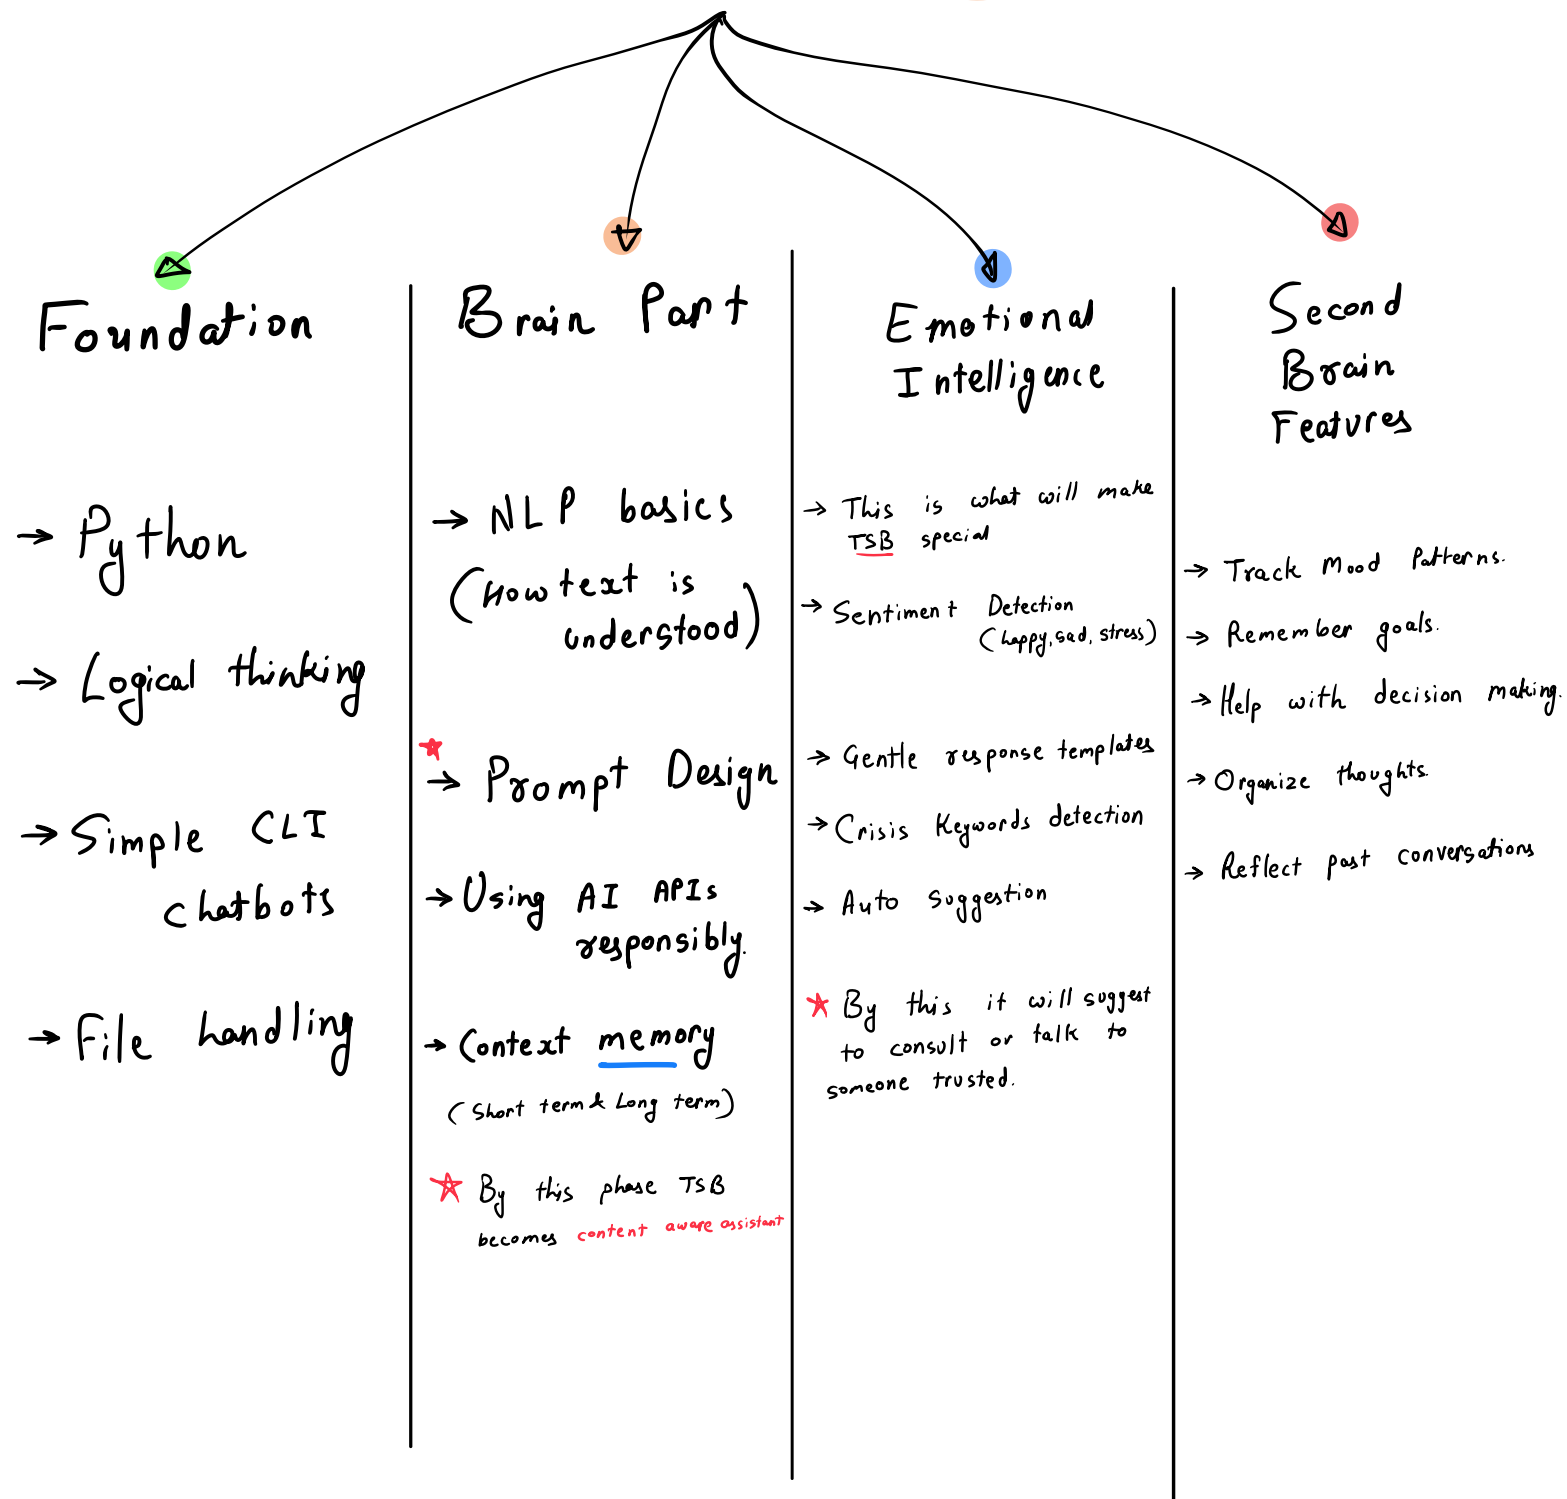 Foundation
→ Python
→ Logical thinking
→ Simple CLI
chatbots
→ File handling
Brain Part
→ NLP basics
(How text is
understood)
→ Prompt Design
→ Using AI APIs
responsibly.
→ Context memory
(Short term & Long term)
By this phase TSB
becomes content aware assistant
Emotional
Intelligence
→ This is what will make
TSB special
→ Sentiment Detection
(happy, sad, stress)
→ Gentle response templates
→ Crisis Keywords detection
→ Auto Suggestion
By this it will suggest
to consult or talk to
someone trusted.
Second
Brain
Features
→ Track Mood Patterns.
→ Remember goals.
→ Help with decision making.
→ Organize thoughts.
→ Reflect past conversations